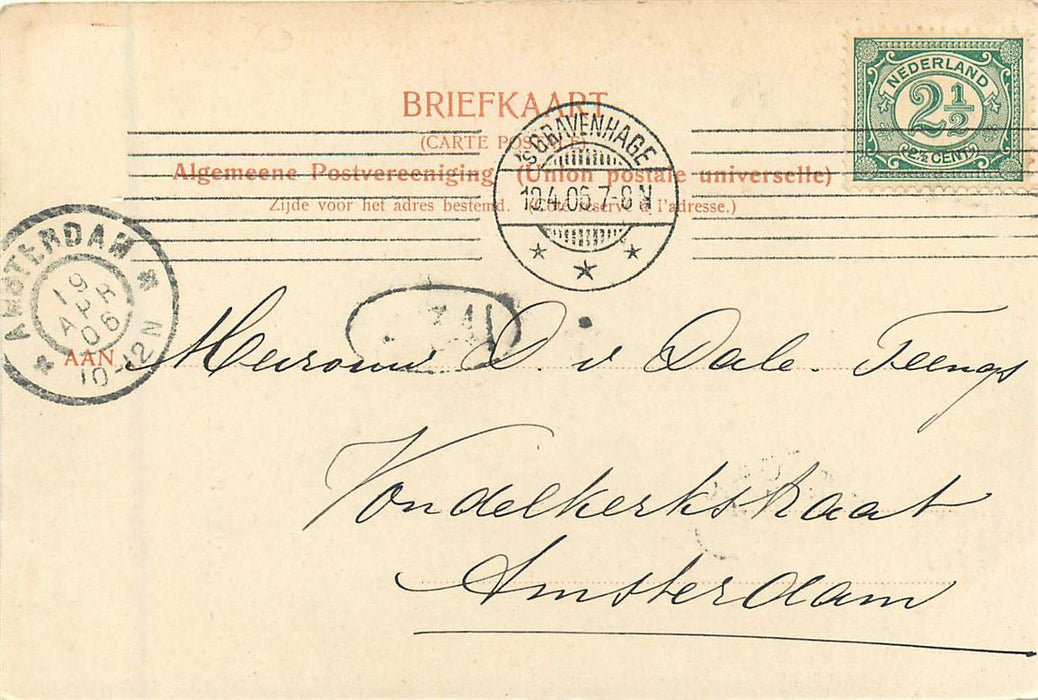 NEDERLAND
2½
2½ CENT
BRIEFKAART
(CARTE POSTALE)
Algemeene Postvereeniging (Union postale universelle)
Zijde voor het adres bestemd. (Côté réservé à l'adresse.)
'SGRAVENHAGE
18.4.06.7-8 N
AMSTERDAM
19 APR 06
10-12N
AAN Mevrouw D. v Dale. Teengs
Vondelkerkstraat
Amsterdam